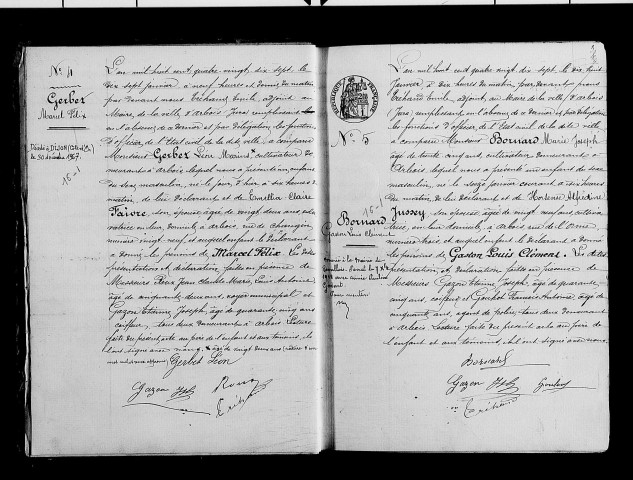 N° 4
Gerbet
Marcel Félix
Décédé à DIJON (Côte d'Or)
le 30 décembre 1967.
15-1
L'an mil huit cent quatre vingt dix sept, le
dix sept janvier à neuf heures et demie du matin
par devant nous Tréhand Emile, adjoint au
Maire de la ville d'Arbois, Jura remplissant
en l'absence de ce dernier et par délégation les fonctions
d'officier de l'état civil de la dite ville, a comparu
Monsieur Gerbet Léon Marius cultivateur de-
meurant à Arbois lequel nous a présenté un enfant
du sexe masculin, né le jour d'hier à six heures du
matin, de lui déclarant et de Emélia Claire
Faivre son épouse âgée de vingt deux ans cul-
tivatrice en leur domicile à Arbois rue de Changin
numéro vingt neuf et auquel enfant le déclarant
a donné les prénoms de Marcel Félix. Les dites
présentation et déclaration faites en présence de
Messieurs Roux Jean Claude Marie Louis Antoine
âgé de cinquante deux ans, voyer municipal et
Gazon Etienne Joseph, âgé de quarante cinq ans
coiffeur, tous deux demeurant à Arbois. Lecture
faite du présent acte au père de l'enfant et aux témoins, ils
l'ont signé avec nous. âgé de vingt deux ans
Gerbet Léon
Gazon Roux
N° 5
15-1
Bornard
Gaston Louis Clément
L'an mil huit cent quatre vingt dix sept, le dix huit
Janvier à dix heures du matin, par devant nous
Tréhand Emile, adjoint, au Maire de la ville d'Arbois
(Jura) remplissant en l'absence de ce dernier et par délégation
les fonctions d'officier de l'état civil de la dite ville
a comparu Monsieur Bornard Marie Joseph
âgé de trente ans cultivateur demeurant à
Arbois lequel nous a présenté un enfant du sexe
masculin, né le seize janvier courant à six heures
du matin, de lui déclarant et de Hortense Alphonsine
Jussey son épouse âgée de vingt neuf ans cultiva-
trice, en leur domicile, à Arbois rue de l'Orme
numéro trois et auquel enfant le déclarant a donné
les prénoms de Gaston Louis Clément. Les dites
présentation et déclaration faites en présence de
Messieurs Gazon Etienne Joseph, âgé de quarante-
cinq ans, coiffeur et François Antoine, âgé de
cinquante ans, agent de police, tous deux demeurant
à Arbois. Lecture faite du présent acte au père de
l'enfant et aux témoins, ils l'ont signé avec nous.
Bornard
Gazon